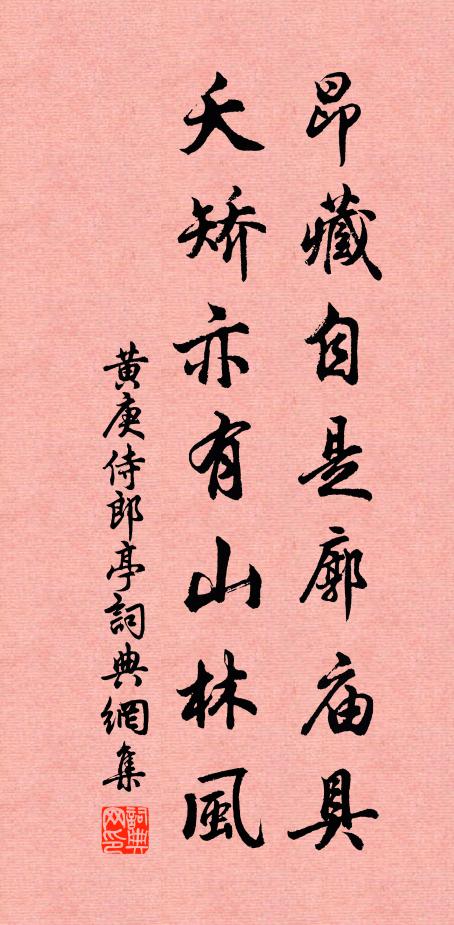 昂藏自是廓庙具
夭矫亦有山林風
黄庚侍郎亭詞典網集
詞典网印